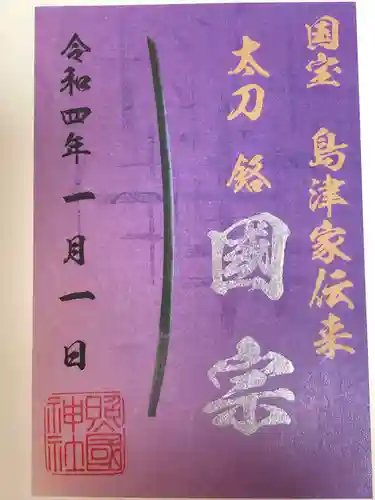 国宝 島津家伝来
太刀 銘
國宗
令和四年一月一日
照國神社